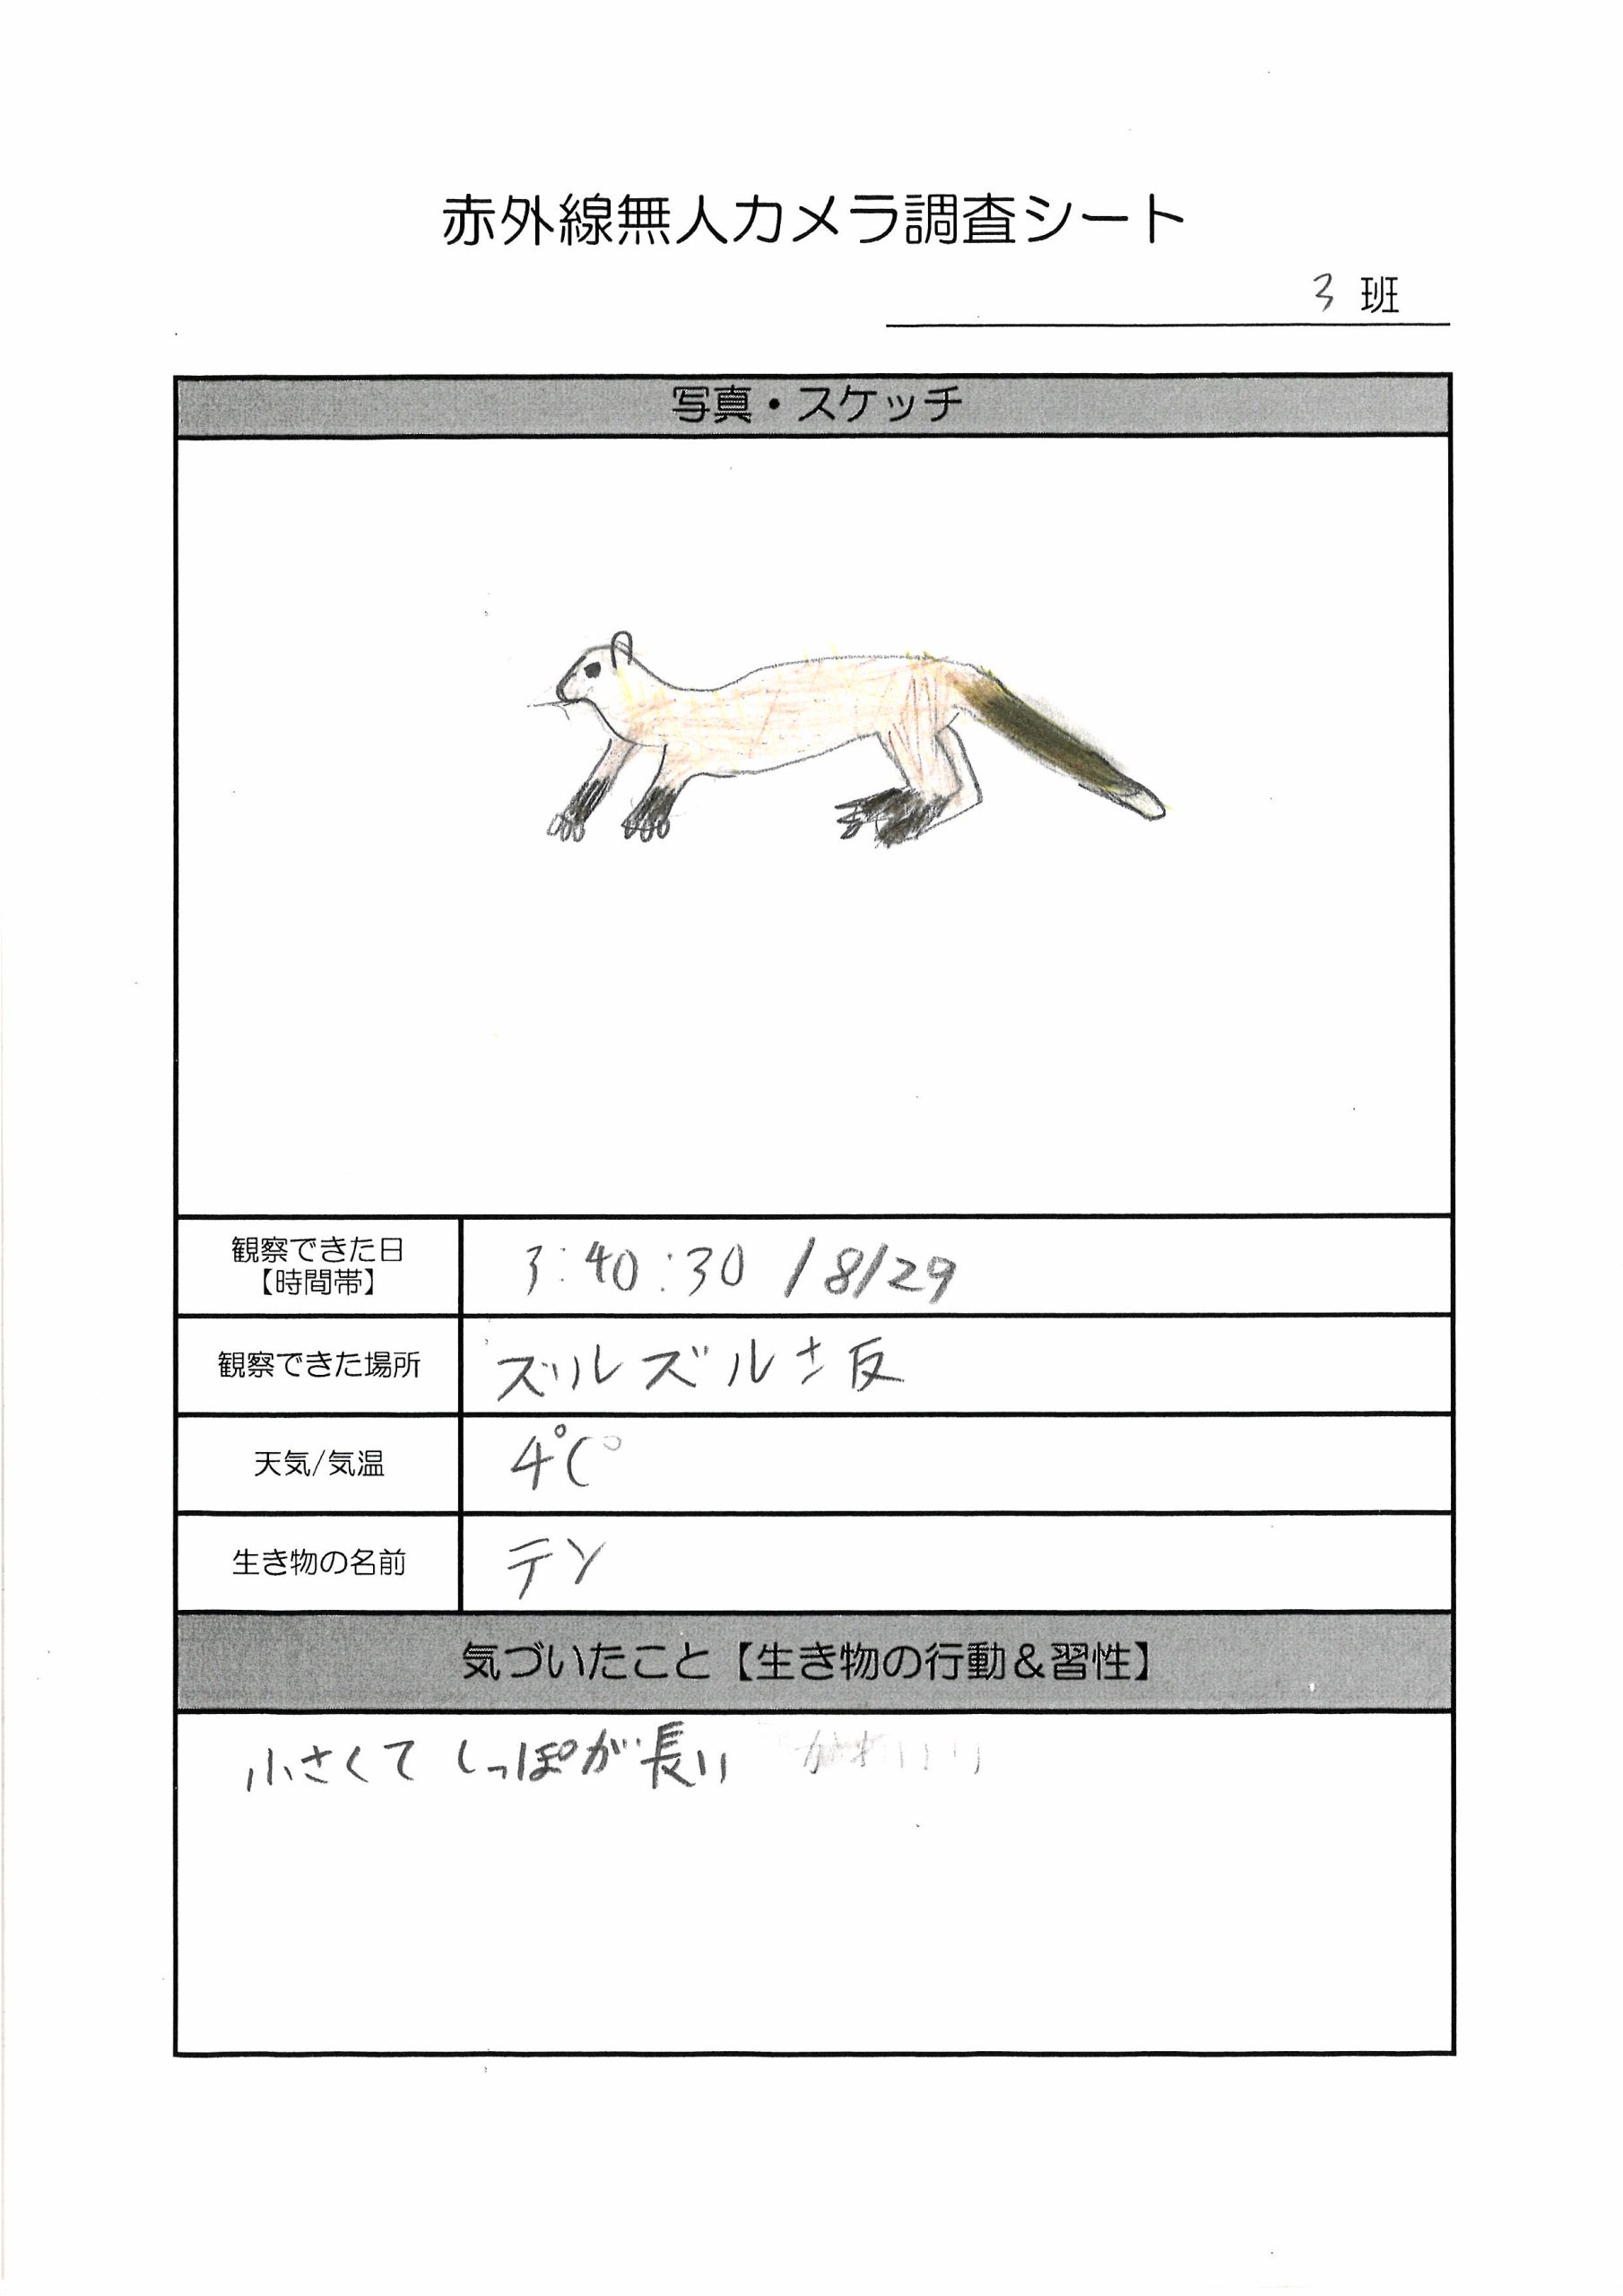 赤外線無人カメラ調査シート
3 班
写真・スケッチ
観察できた日
【時間帯】
3:40:30 / 8/29
観察できた場所
ズルズル坂
天気/気温
4°C°
生き物の名前
テン
気づいたこと【生き物の行動&習性】
小さくて しっぽが長い